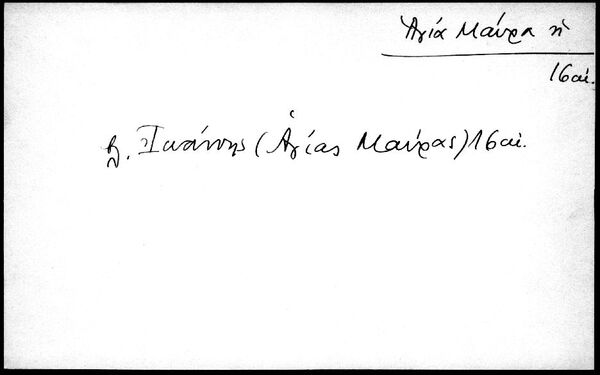 Ἁγία Μαύρα ἡ
16 αἰ.
βλ. Ἰωάννης (Ἁγίας Μαύρας) 16 αἰ.